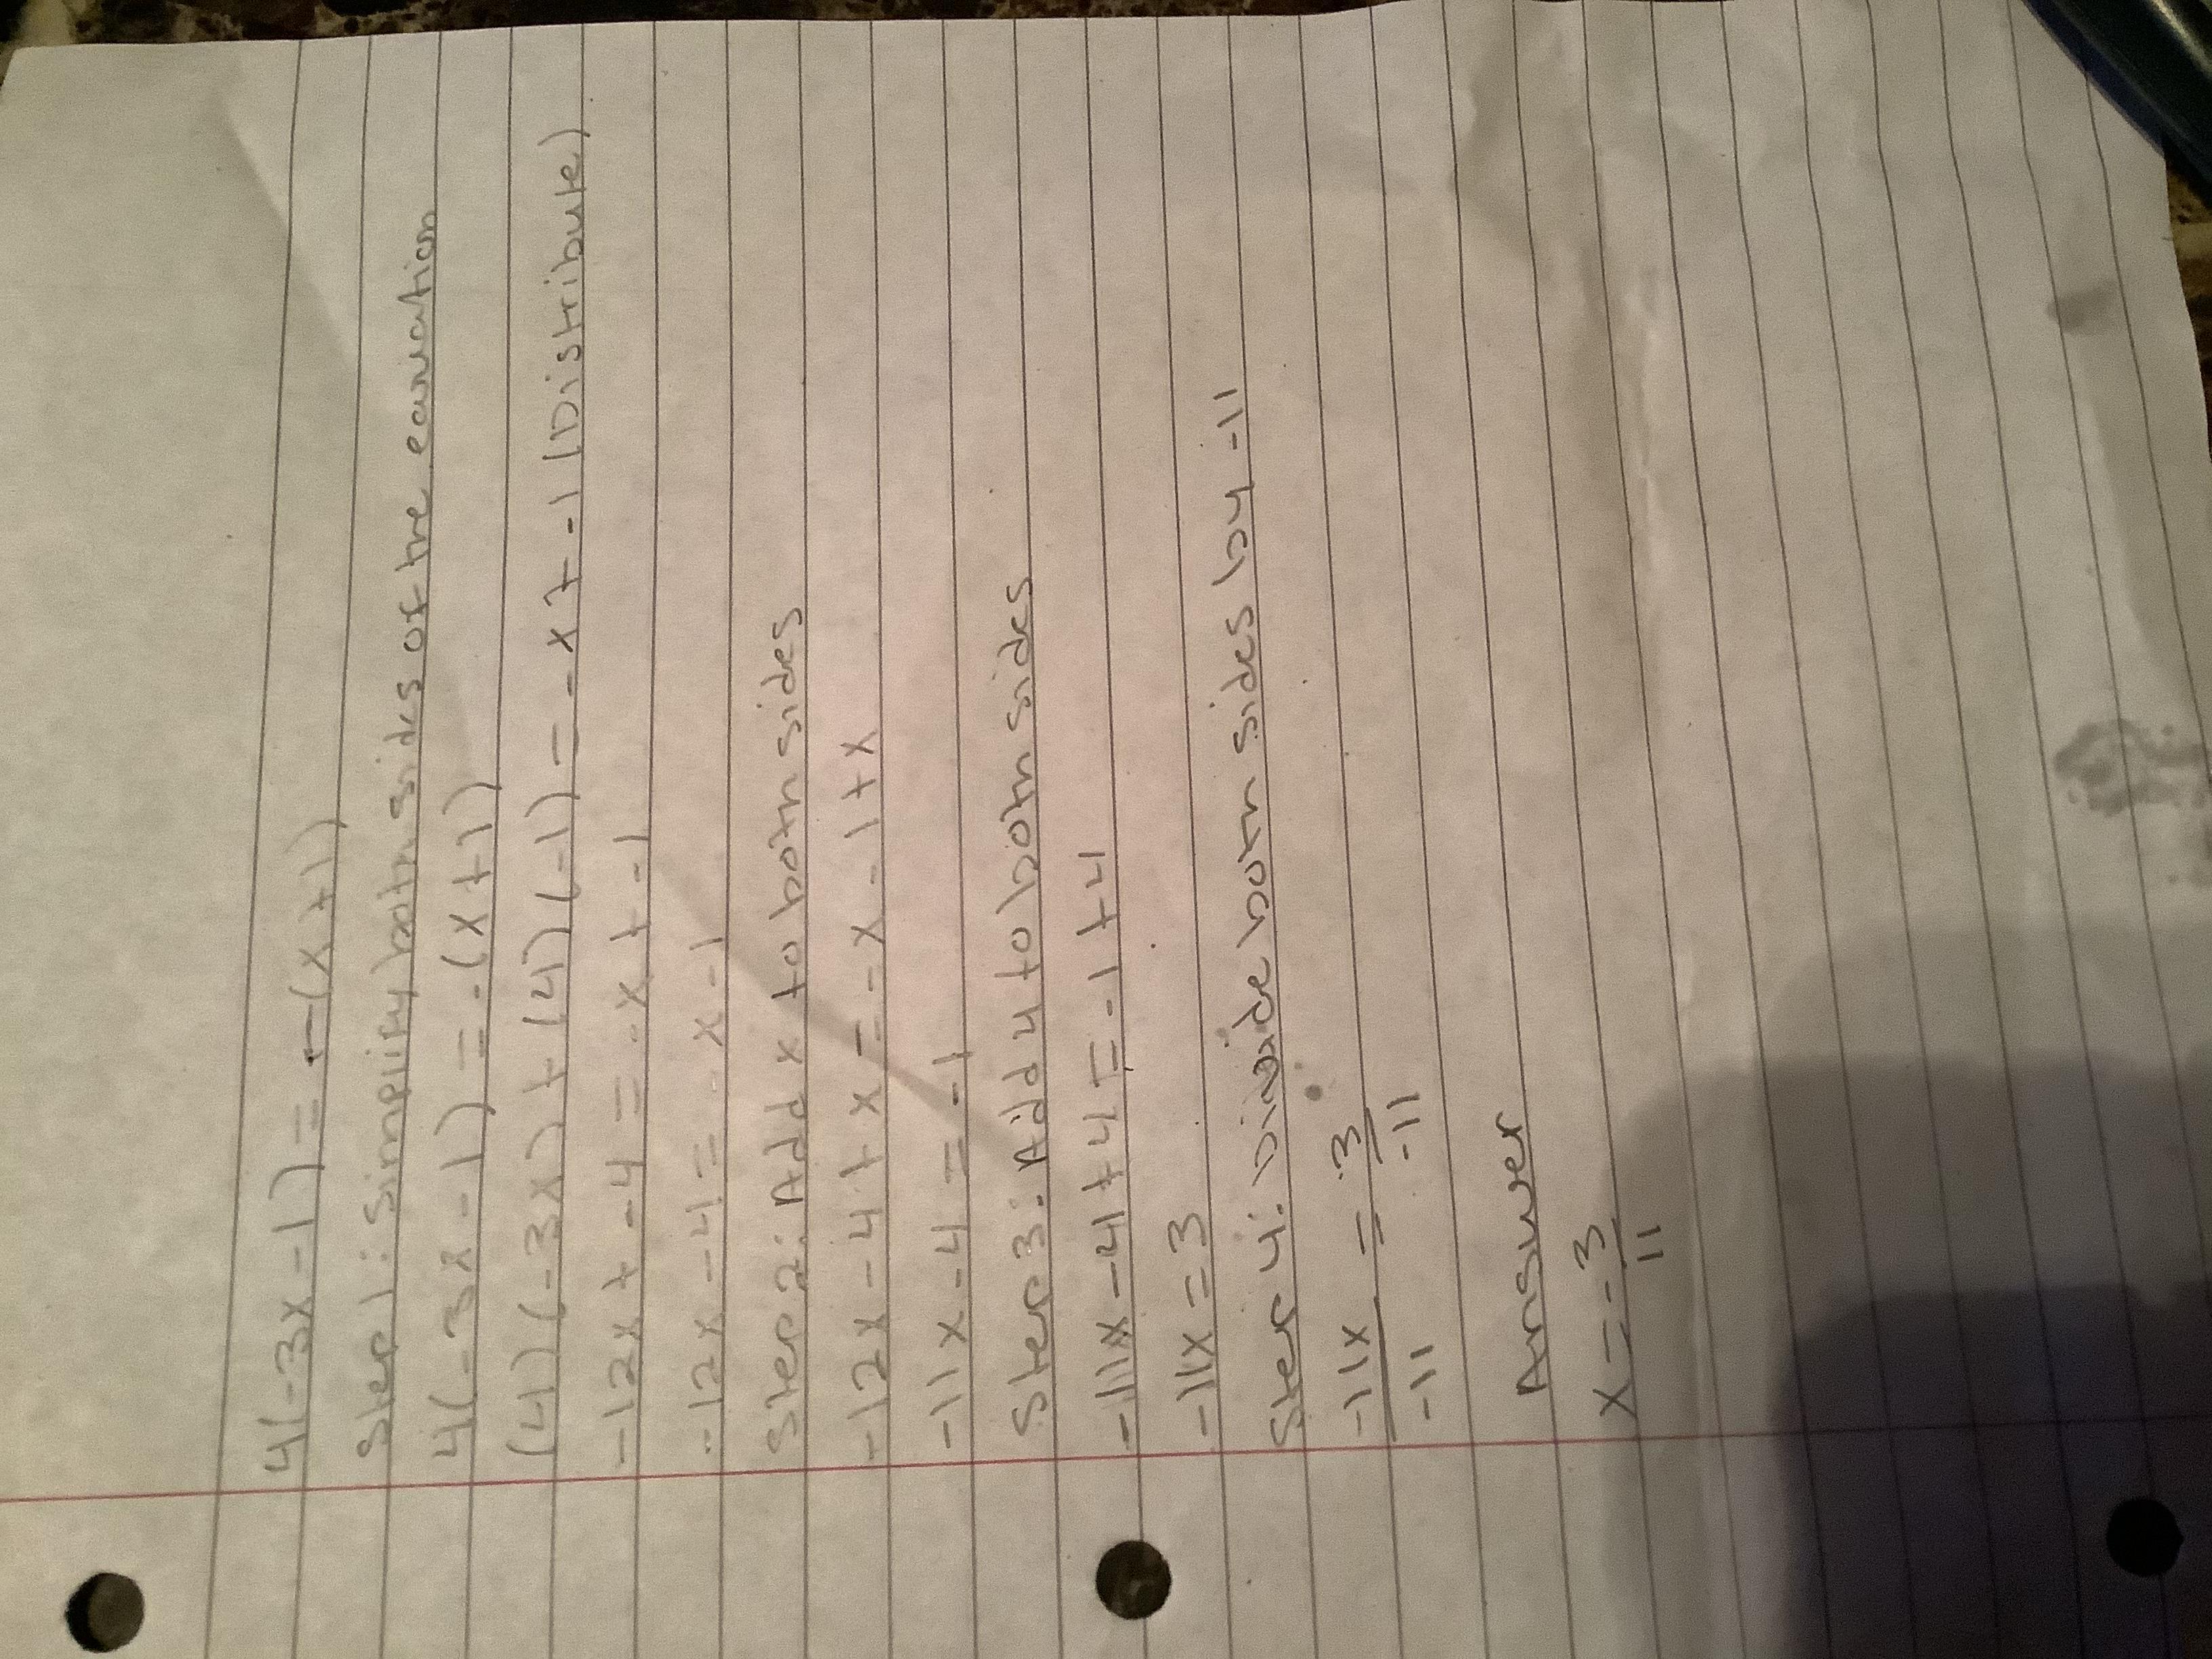 4(-3x-1)=-(x+1)
Step 1: Simplify both sides of the equation
4(-3x-1)=-(x+1)
(4)(-3x)+(4)(-1)=-x+-1(Distribute)
-12x+-4=-x+-1
-12x-4=-x-1
Step 2: Add x to both sides
-12x-4+x=-x-1+x
-11x-4=-1
Step 3: Add 4 to both sides
-11x-4+4=-1+4
-11x=3
Step 4: Divide both sides by -11
-11x = 3
-11 -11
Answer
x=-3
11